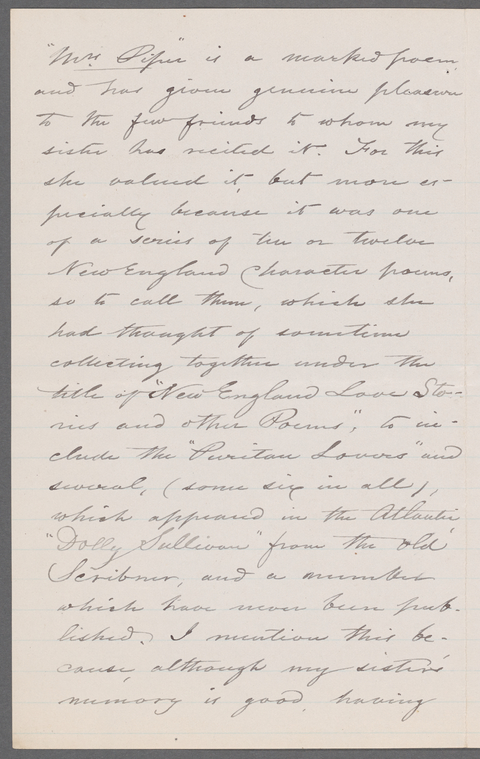 "Mrs. Piper" is a marked poem
and has given genuine pleasure
to the few friends to whom my
sister has recited it. For this
she valued it, but more es-
pecially because it was one
of a series of ten or twelve
New England Character poems,
so to call them, which she
had thought of sometime
collecting together under the
title of "New England Love Sto-
ries and other Poems", to in-
clude the "Puritan Lovers" and
several, (some six in all),
which appeared in the Atlantic
"Dolly Sullivan" from the old
Scribner, and a number
which have never been pub-
lished. I mention this be-
cause, although my sister's
memory is good, having